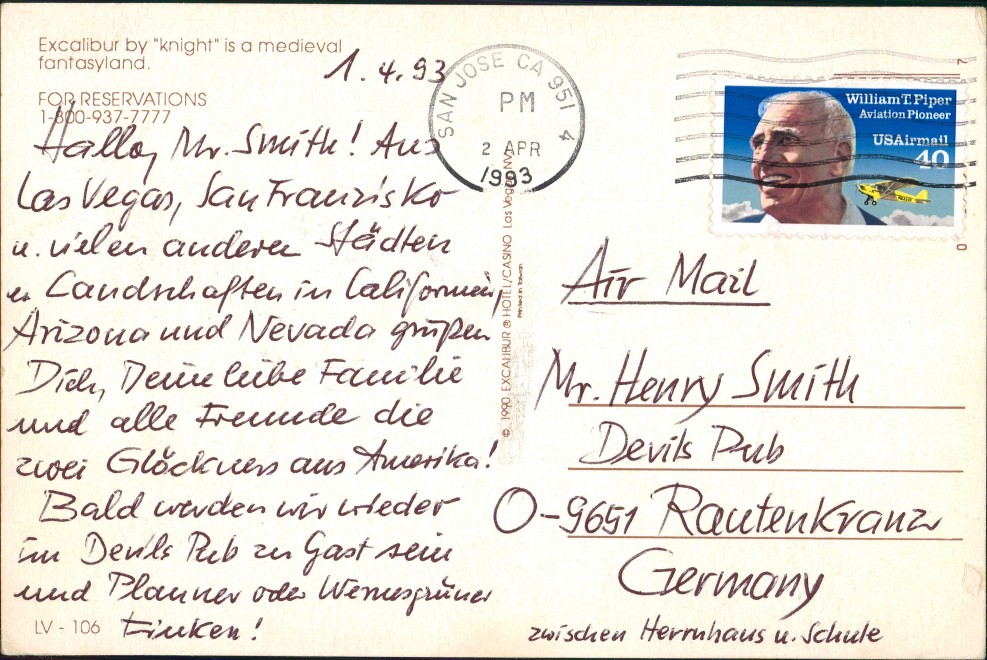 Excalibur by "knight" is a medieval
fantasyland.
FOR RESERVATIONS
1-800-937-7777
1.4.93
Hallo, Mr. Smith! Aus
Las Vegas, San Franzisko
u. vielen anderen Städten
u. Landschaften in Californien,
Arizona und Nevada grüßen
Dich, Deine liebe Familie
und alle Freunde die
zwei Glöckners aus Amerika!
Bald werden wir wieder
im Devils Pub zu Gast sein
und Planner oder Wernesgrüner
trinken!
LV - 106
SAN JOSE CA 951 4
PM
2 APR
1993
© 1990 EXCALIBUR ® HOTEL/CASINO Las Vegas, NV
Printed in Taiwan
William T. Piper
Aviation Pioneer
USAirmail
40
Air Mail
Mr. Henry Smith
Devils Pub
O-9651 Rautenkranz
Germany
zwischen Herrnhaus u. Schule